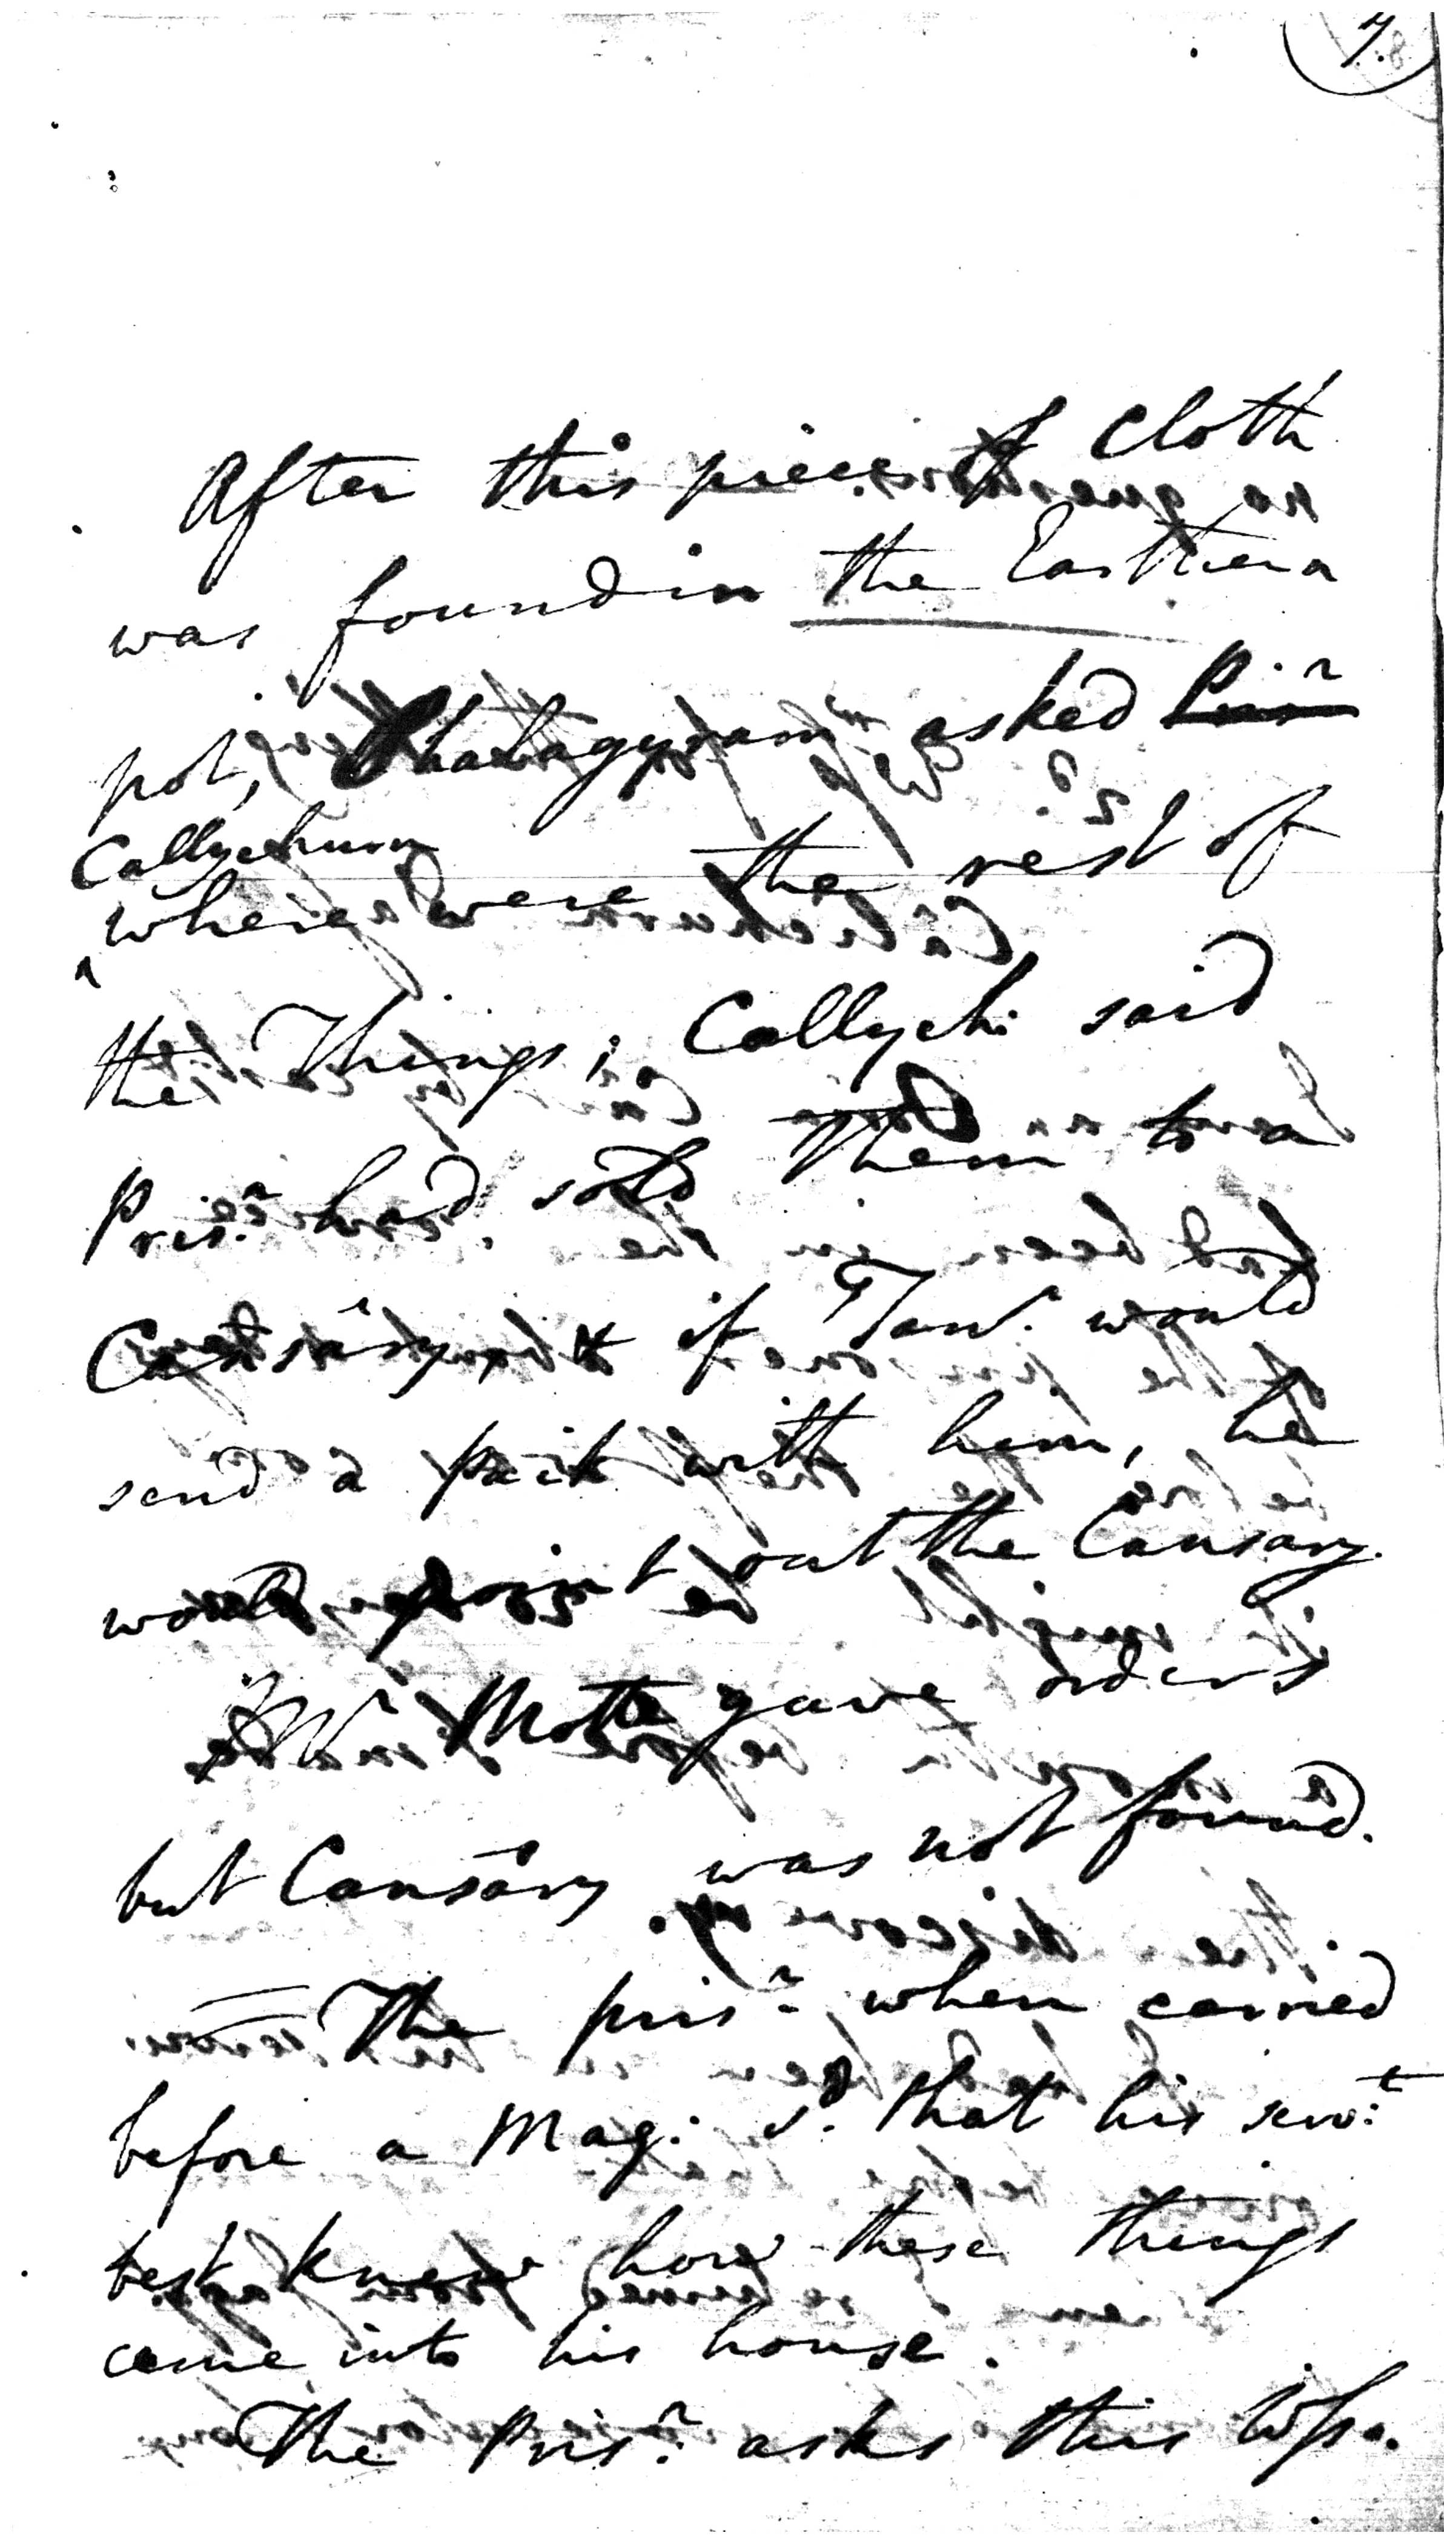 7.
After this piece of Cloth
was found in the Earthen
pot, asked Pris.r
Callychurn
where were the rest of
the Things; Callych: said
Pris.r had sold them to a
Cansary, & if would
send a with him, he
would point out the Cansary.
Mr Motte gave orders
but Cansary was not found.
The pris.r when carried
before a Mag: s.d that his serv:t
best knew how these things
came into his house.
The Pris.r asks this